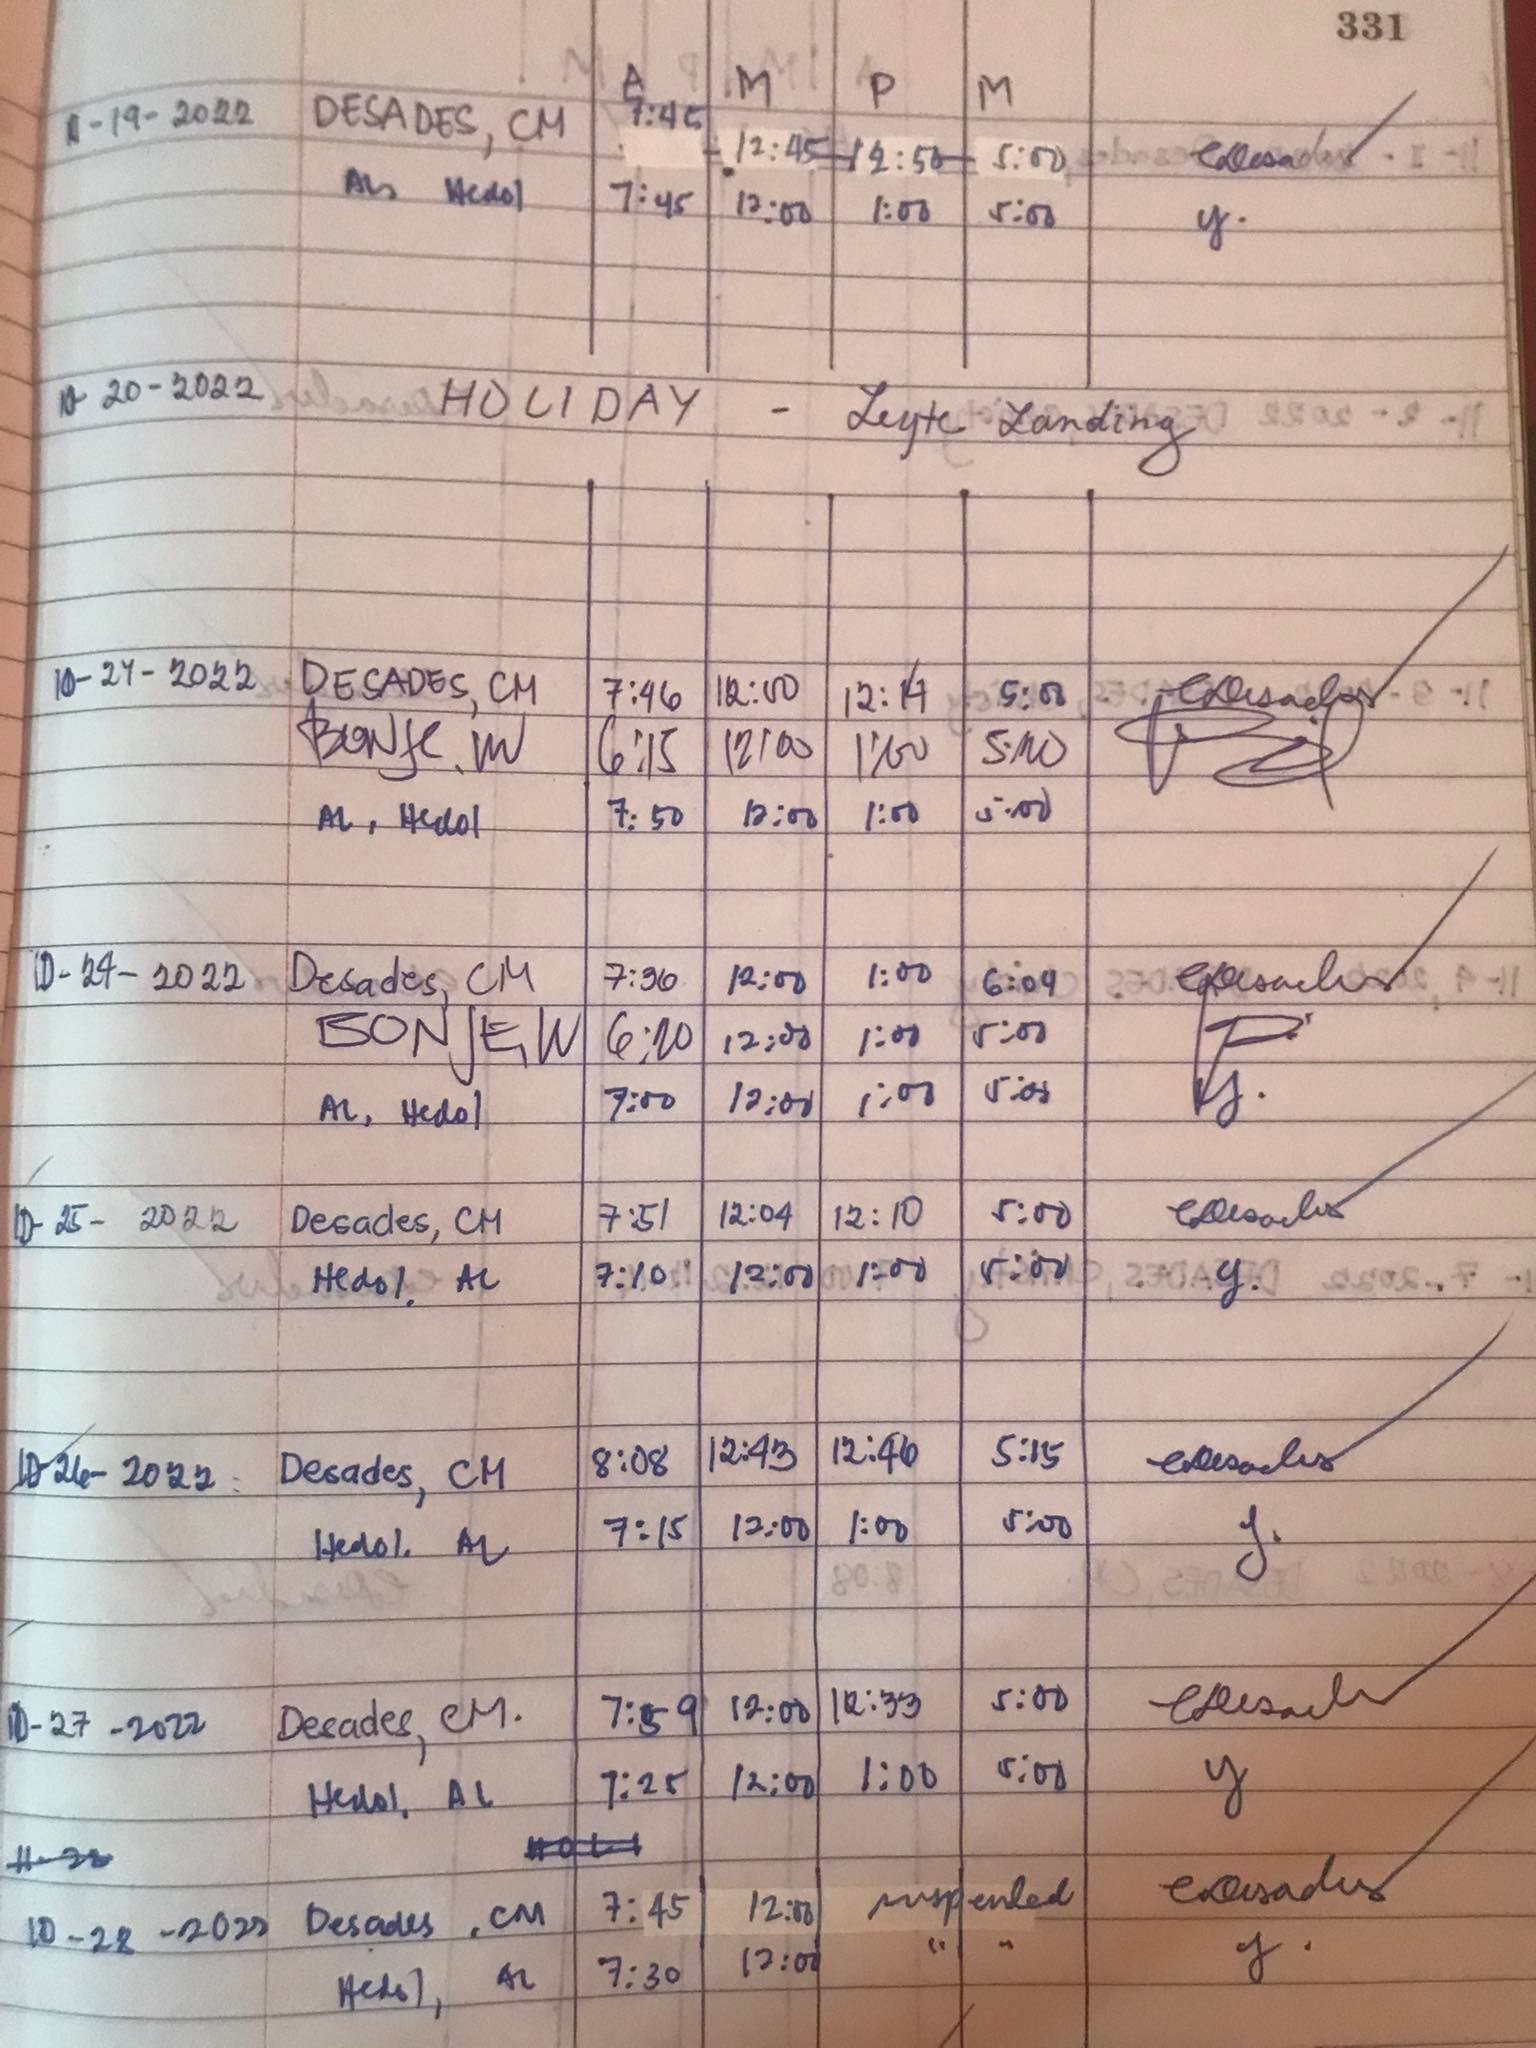 331
A M P M
10-19-2022 DESADES, CM 7:45 12:45 12:50 5:00
AL, Hedol 7:45 12:00 1:00 5:00 y.
10-20-2022 HOLIDAY - Leyte Landing
10-21-2022 DESADES, CM 7:46 12:00 12:14 5:00
BONJE, W 6:15 12:00 1:00 5:00
AL, Hedol 7:50 12:00 1:00 5:00
10-24-2022 Desades, CM 7:30 12:00 1:00 6:09
BONJE, W 6:20 12:00 1:00 5:00
AL, Hedol 7:00 12:00 1:00 5:00 y.
10-25-2022 Desades, CM 7:51 12:04 12:10 5:00
Hedol, AL 7:10 12:00 1:00 5:00 y.
10-26-2022 Desades, CM 8:08 12:43 12:46 5:15
Hedol, AL 7:15 12:00 1:00 5:00 y.
10-27-2022 Desades, CM. 7:59 12:00 12:33 5:00
Hedol, AL 7:25 12:00 1:00 5:00 y
11-28 HOLI
10-28-2022 Desades, CM 7:45 12:00 suspended
Hedol, AL 7:30 12:00 " " y.